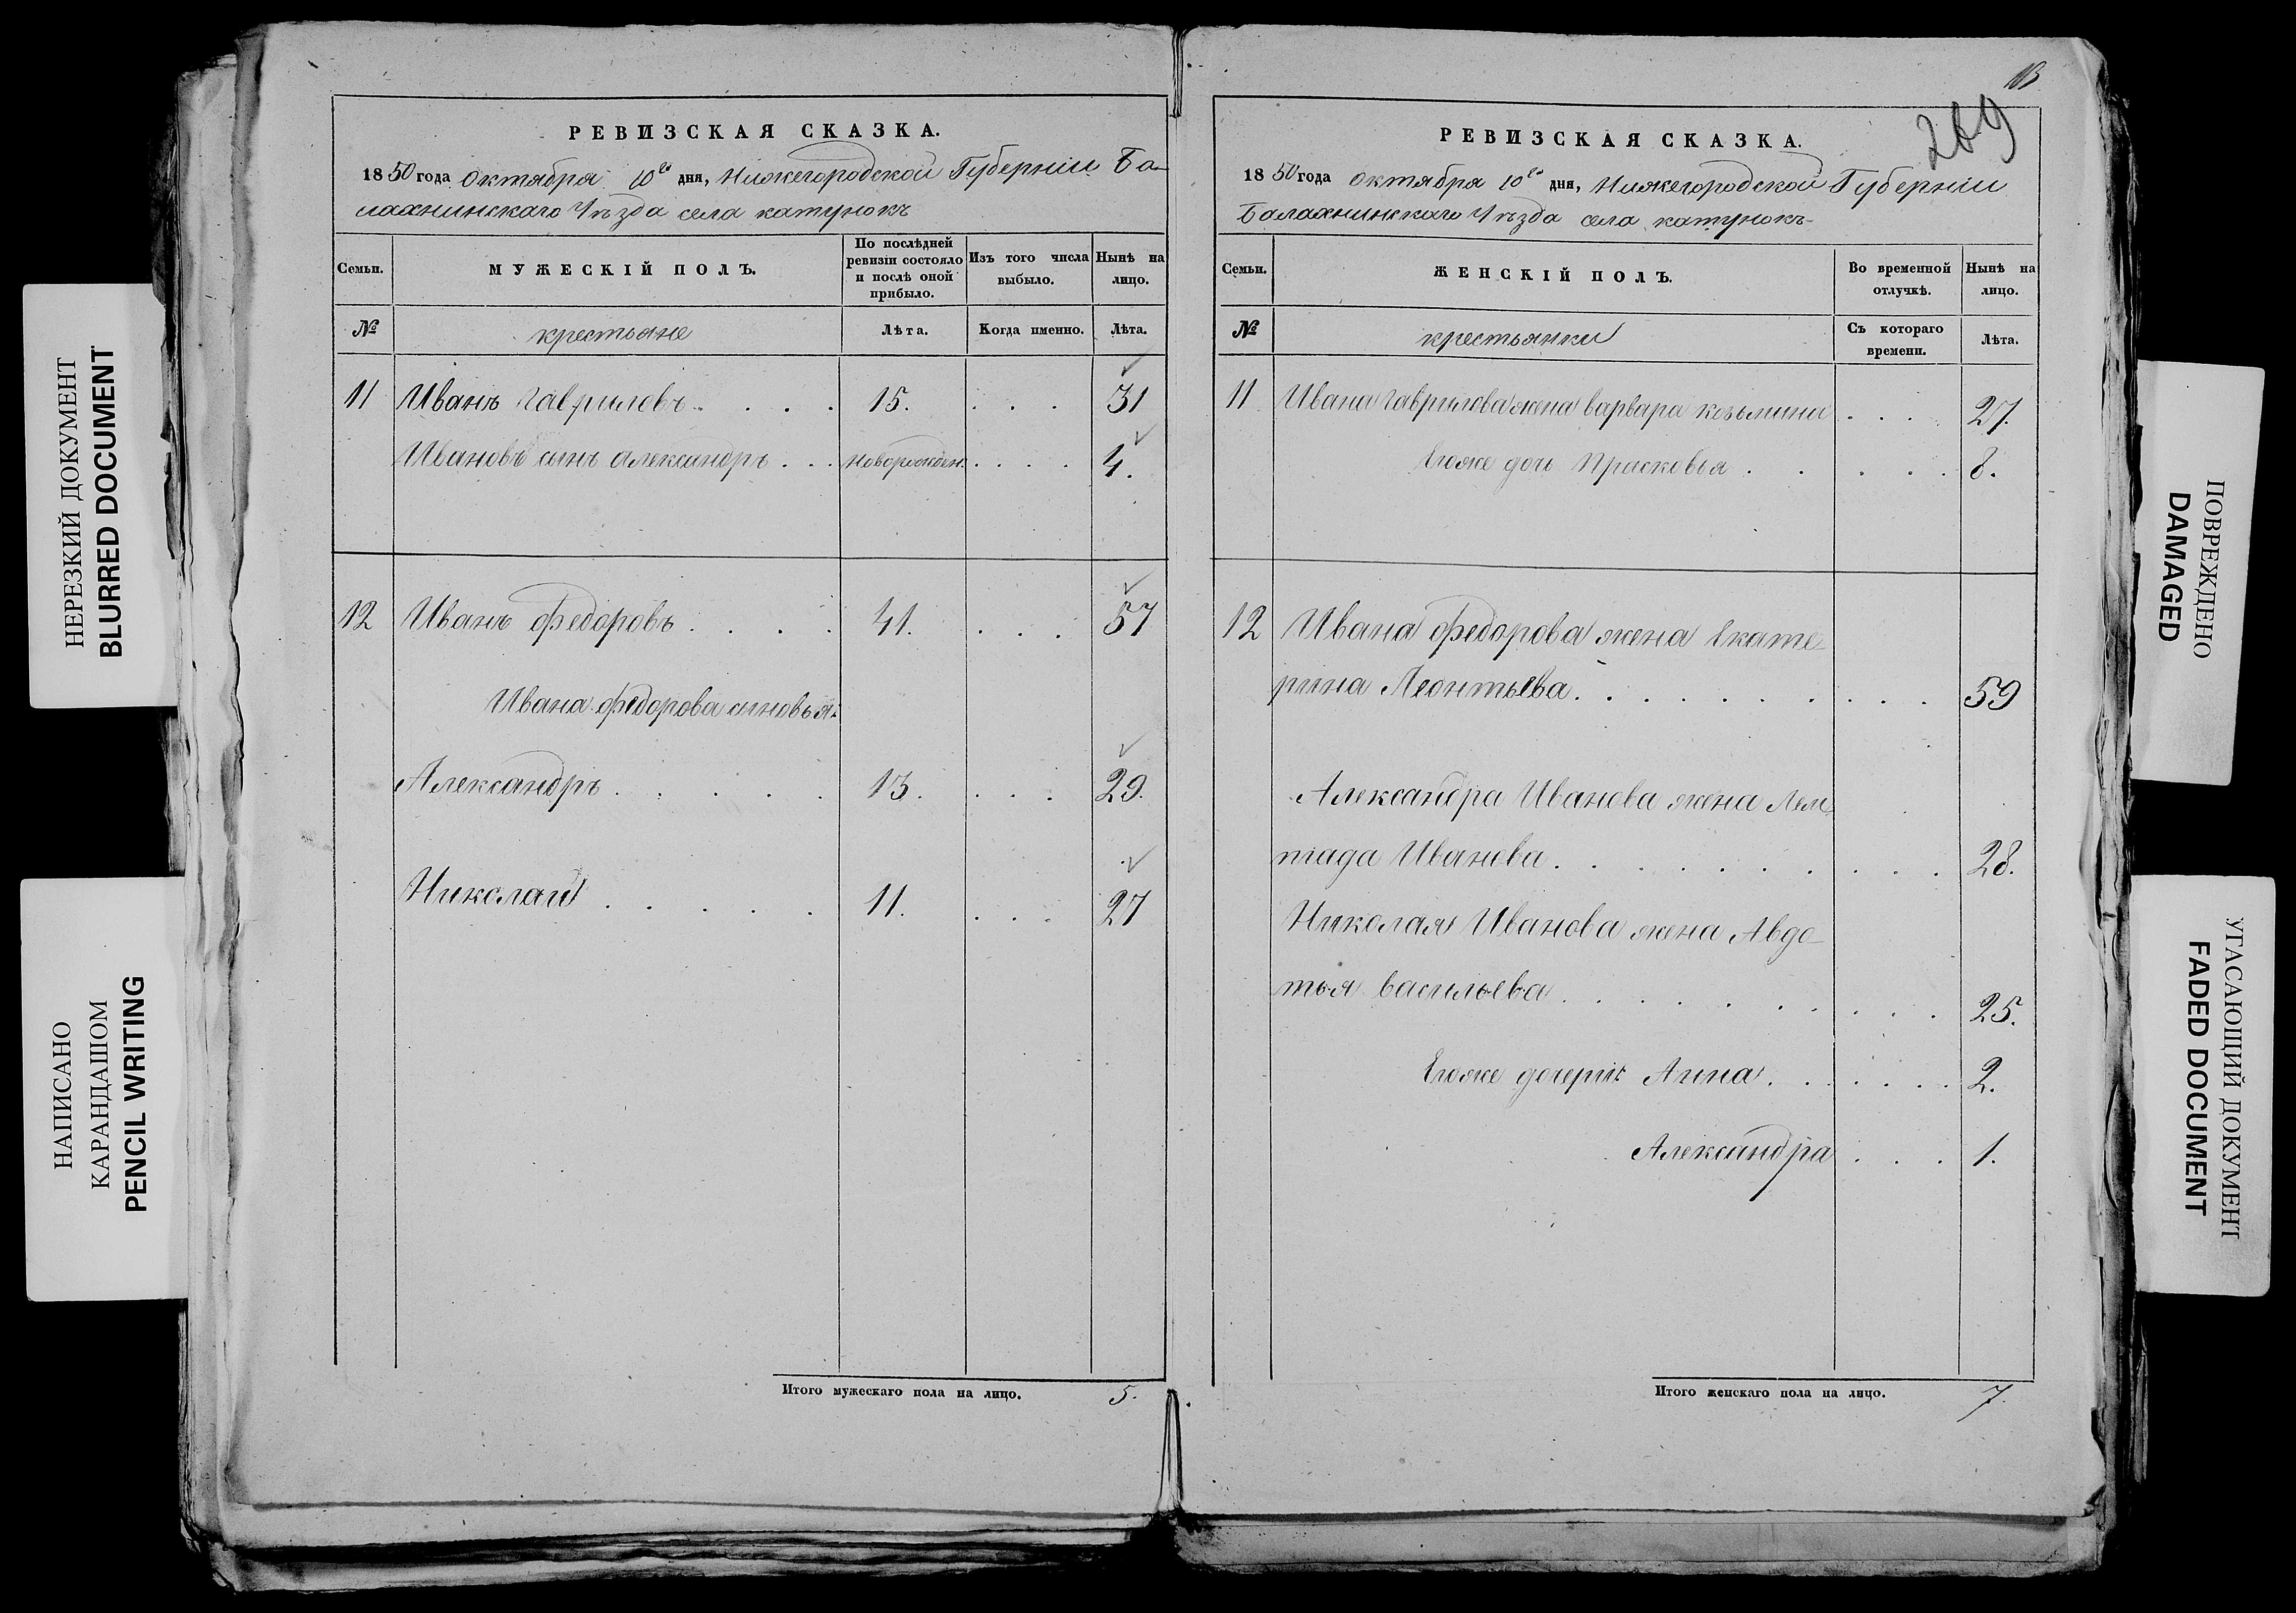 НЕРЕЗКИЙ ДОКУМЕНТ
BLURRED DOCUMENT
НАПИСАНО
КАРАНДАШОМ
PENCIL WRITING
РЕВИЗСКАЯ СКАЗКА.
1850 года октября 10го дня, Нижегородской Губернiи Ба-
лахнинскаго Уѣзда села катунокъ
Семьи. МУЖЕСКIЙ ПОЛЪ. По послѣдней ревизiи состояло и послѣ оной прибыло. Изъ того числа выбыло. Нынѣ на лицо.
№ крестьяне Лѣта. Когда именно. Лѣта.
11 Иванъ Гавриловъ . . . . 15. . . . 31
Ивановъ сынъ александръ . . . новорожден. . . . . 4.
12 Иванъ федоровъ . . . . 41. . . . 57
Ивана федорова сыновья:
Александръ . . . . . 13. . . . 29.
Николай . . . . . 11. . . . 27
Итого мужескаго пола на лицо. 5.
269
РЕВИЗСКАЯ СКАЗКА.
1850 года октября 10го дня, Нижегородской Губернiи
Балахнинскаго Уѣзда села катунокъ
Семьи. ЖЕНСКIЙ ПОЛЪ. Во временной отлучкѣ. Нынѣ на лицо.
№ крестьянки Съ котораго времени. Лѣта.
11 Ивана Гаврилова жена варвара козьмина . . . . 27.
Егоже дочь Прасковья . . . . . 8.
12 Ивана федорова жена Екате-
рина Леонтьева . . . . . . . . . 59
Александра Иванова жена
Иванова . . . . . . . . . 28.
Николая Иванова жена Авдо-
тья васильева . . . . . . . . . 25.
Егоже дочери: Анна . . . . . . 2.
Александра . . . 1.
Итого женскаго пола на лицо. 7.
ПОВРЕЖДЕНО
DAMAGED
УГАСАЮЩИЙ ДОКУМЕНТ
FADED DOCUMENT